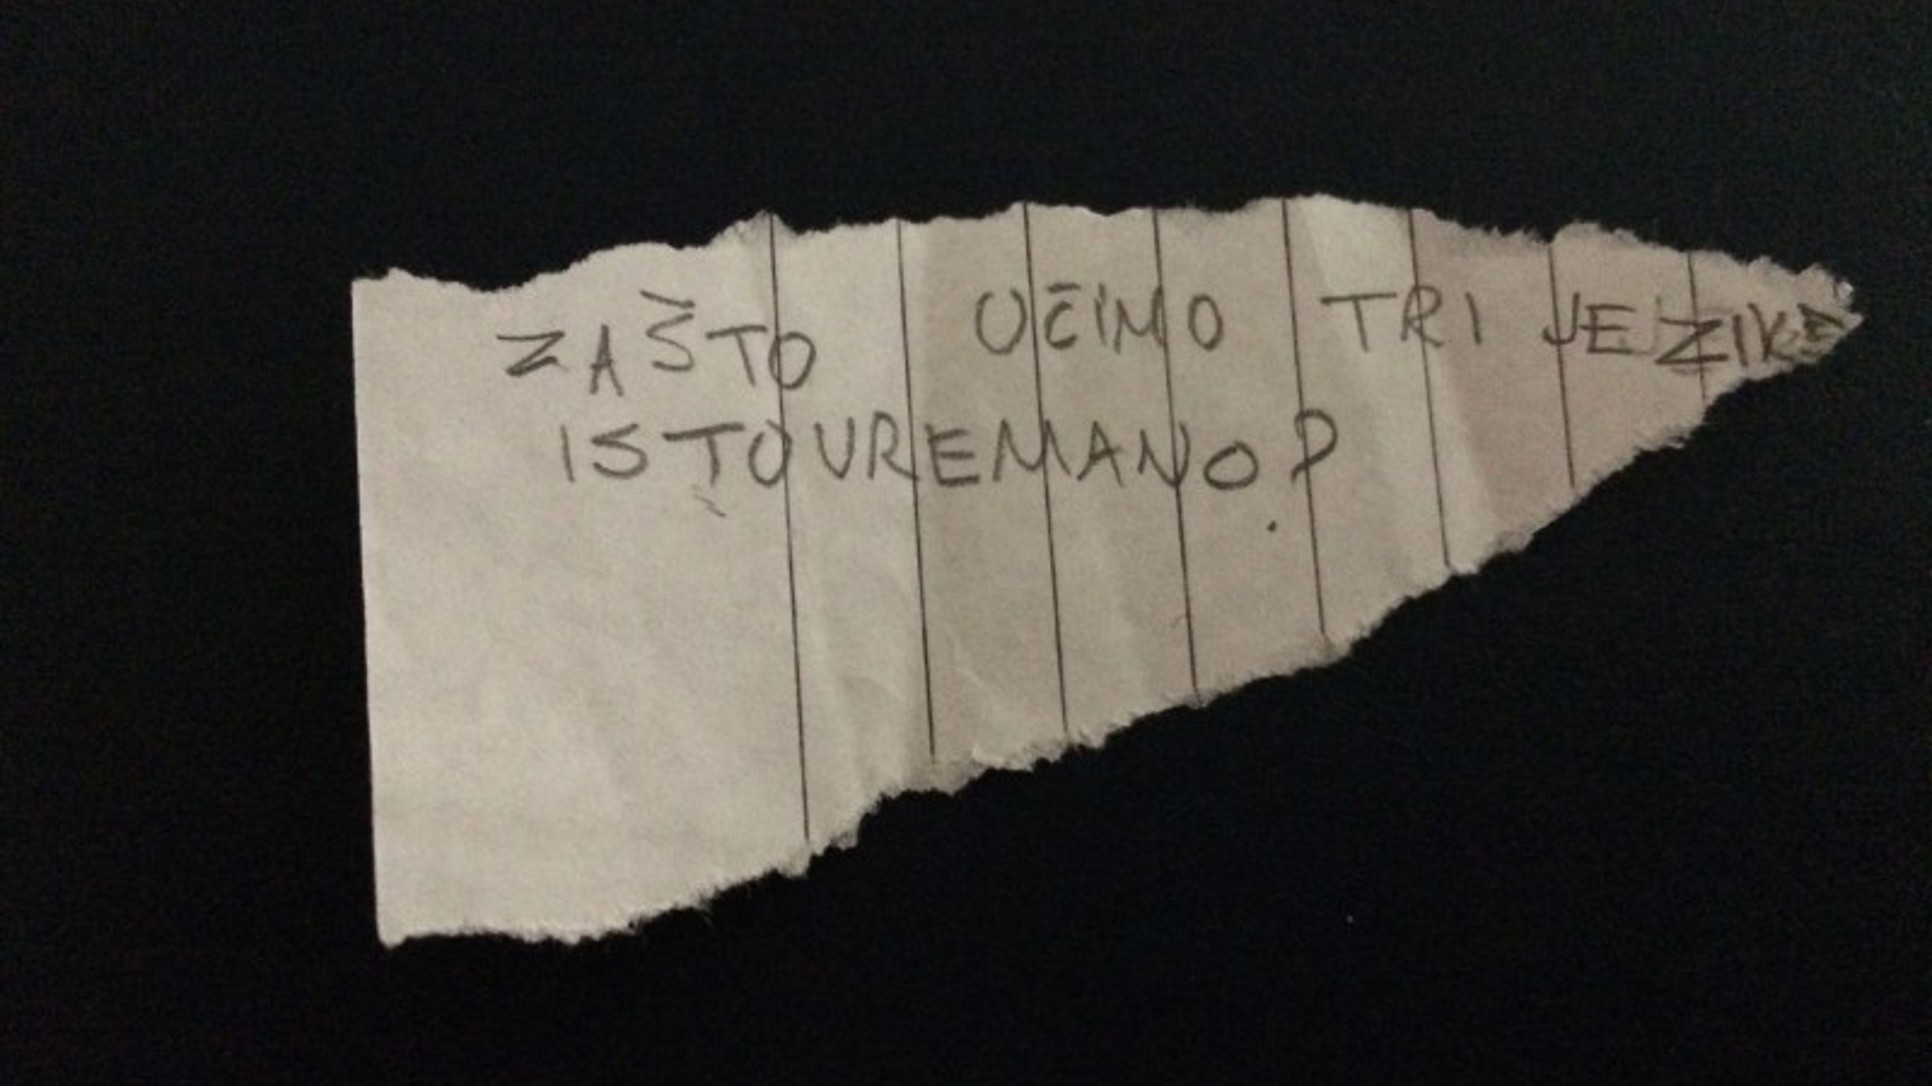 ZAŠTO UČIMO TRI JEZIKE
ISTOUREMANO?